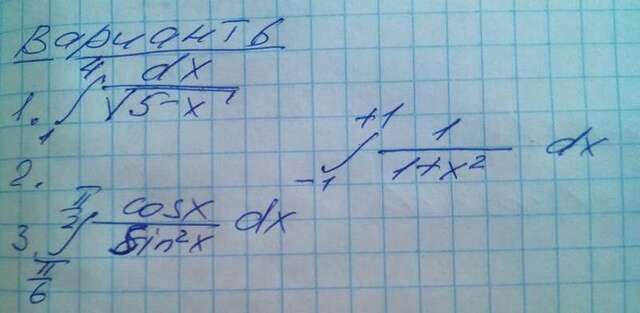 Вариант 6
1. ∫₁⁴ dx/√(5-x)
2. ∫₋₁⁺¹ 1/(1+x²) dx
3. ∫_{π/6}^{π/2} cosx/sin²x dx